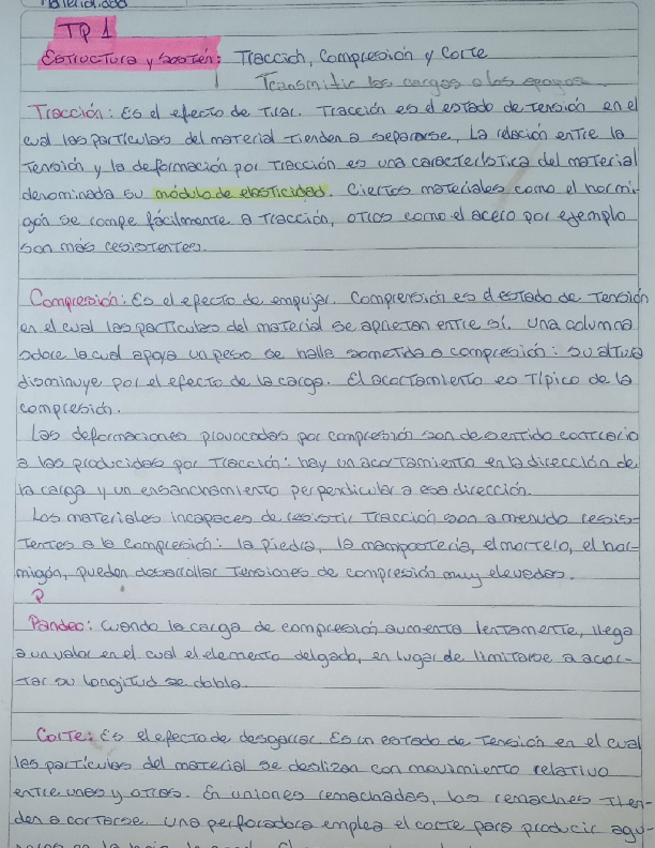 Materialidad
TP 1
Estructura y sostén: Tracción, Compresión y Corte
Transmitir las cargas a los apoyos.
Tracción: Es el efecto de tirar. Tracción es el estado de tensión en el
cual las partículas del material tienden a separarse, La relación entre la
tensión y la deformación por tracción es una característica del material
denominada su módulo de elasticidad. Ciertos materiales como el hormi-
gón se rompe fácilmente a tracción, otros como el acero por ejemplo
son más resistentes.
Compresión: Es el efecto de empujar. Comprensión es el estado de tensión
en el cual las partículas del material se aprietan entre sí. Una columna
sobre la cual apoya un peso se halla sometida a compresión: su altura
disminuye por el efecto de la carga. El acortamiento es típico de la
compresión.
Las deformaciones provocadas por compresión son de sentido contrario
a las producidas por tracción: hay un acortamiento en la dirección de
la carga y un ensanchamiento perpendicular a esa dirección.
Los materiales incapaces de resistir tracción son a menudo resis-
tentes a la compresión: la piedra, la mampostería, el mortero, el hor-
migón, pueden desarrollar tensiones de compresión muy elevedas.
P
Pandeo: Cuando la carga de compresión aumenta lentamente, llega
a un valor en el cual el elemento delgado, en lugar de limitarse a acor-
tar su longitud se dobla.
Corte: Es el efecto de desgarrar. Es un estado de tensión en el cual
las partículas del material se deslizan con movimiento relativo
entre unas y otras. En uniones remachadas, los remaches tien-
den a cortarse. Una perforadora emplea el corte para producir agu-